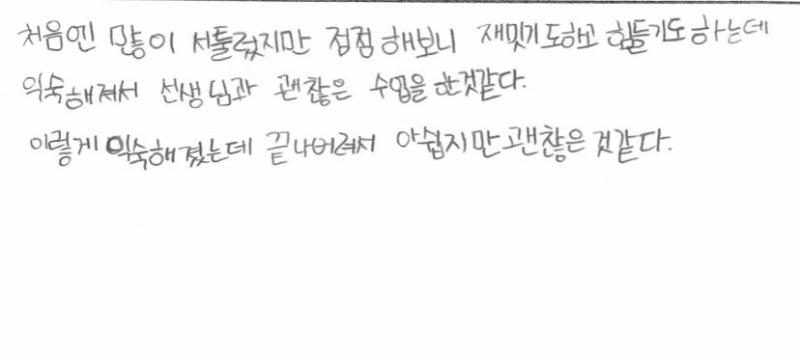 처음엔 많이 서툴렀지만 점점 해보니 재밋기도하고 힘들기도 하는데
익숙해져서 선생님과 괜찮은 수업을 한것같다.
이렇게 익숙해졌는데 끝나버려서 아쉽지만 괜찮은 것같다.